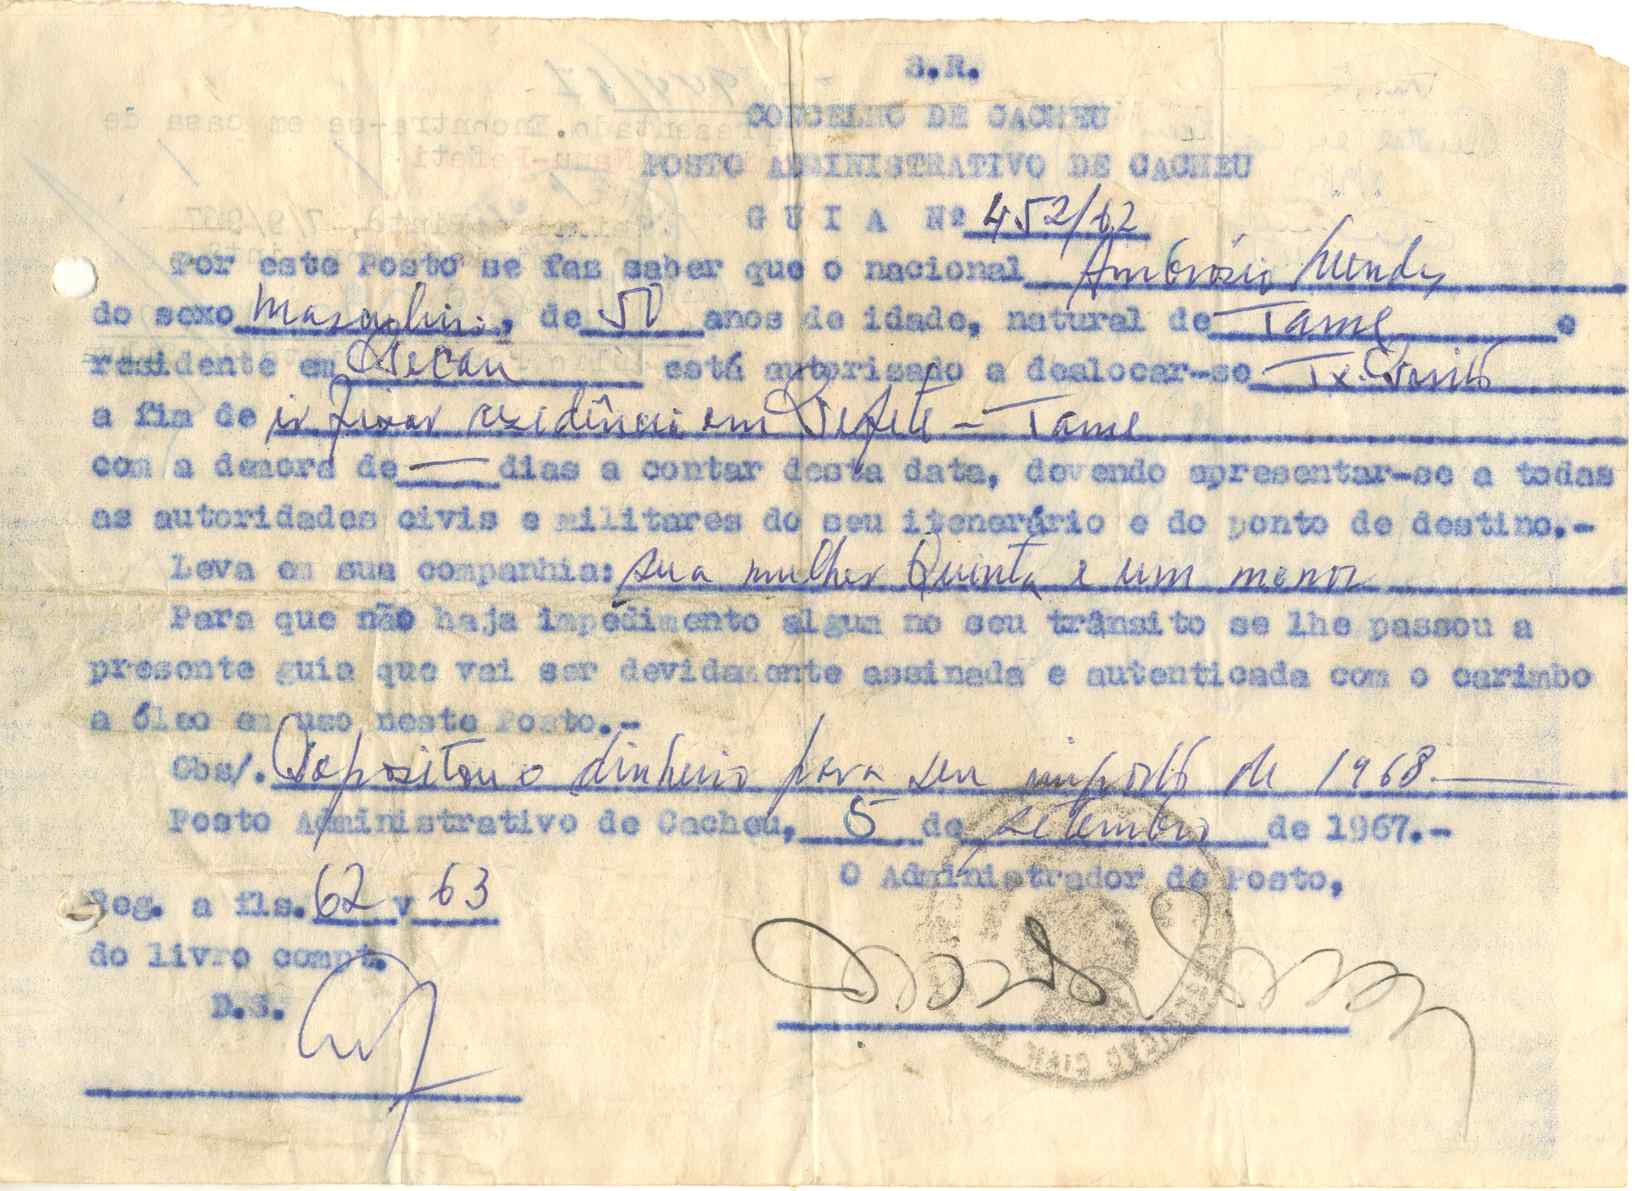 S.R.
CONCELHO DE CACHEU
POSTO ADMINISTRATIVO DE CACHEU
G U I A Nº 452/62
Por este Posto se faz saber que o nacional Ambrósio Mendy
do sexo Masculino, de 50 anos de idade, natural de Tame e
residente em está autorizado a deslocar-se
a fim de ir fixar residência em - Tame
com a demora de — dias a contar desta data, devendo apresentar-se a todas
as autoridades civis e militares do seu itenerário e do ponto de destino.-
Leva em sua companhia: sua mulher Quinta e um menor
Para que não haja impedimento algum no seu trânsito se lhe passou a
presente guia que vai ser devidamente assinada e autenticada com o carimbo
a óleo em uso neste Posto.-
Obs/. Depositou o dinheiro para seu imposto de 1968
Posto Administrativo de Cacheu, 5 de setembro de 1967.-
O Administrador de Posto,
Reg. a fls. 62 v 63
do livro compt.
D.S.